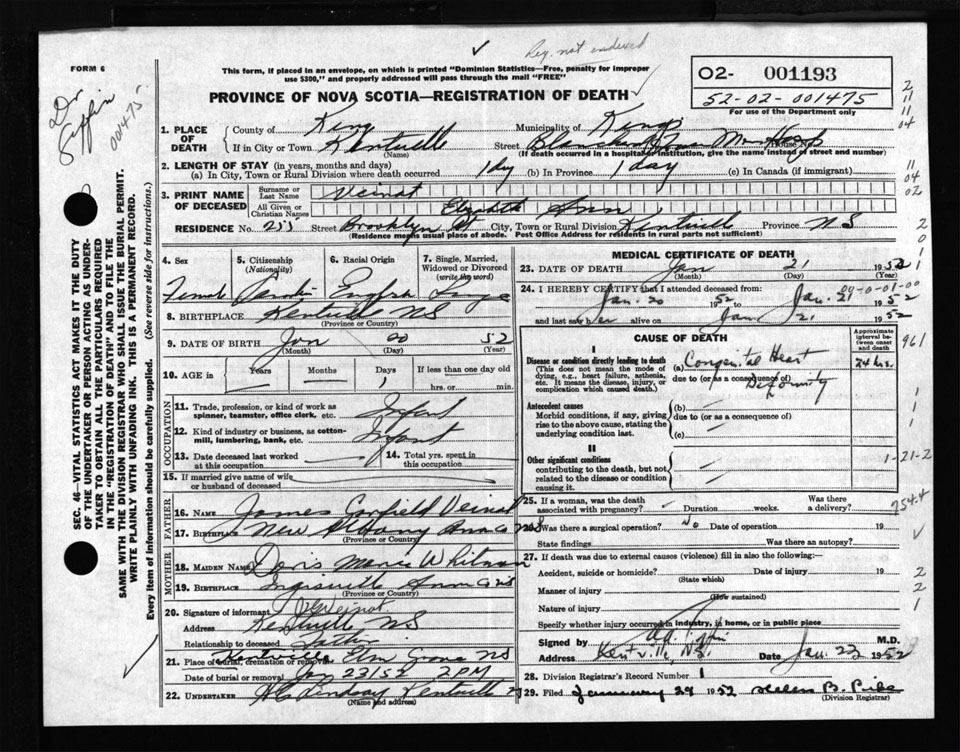 Reg. not endexed
FORM 6
This form, if placed in an envelope, on which is printed "Dominion Statistics—Free, penalty for improper
use $300," and properly addressed will pass through the mail "FREE"
O2- 001193
52-02-001475
For use of the Department only
PROVINCE OF NOVA SCOTIA—REGISTRATION OF DEATH
Dr
001475
1. PLACE OF DEATH
County of Kings Municipality of Kings
If in City or Town Kentville Street Blanchard Mem Hosp House No.
(Name) (If death occurred in a hospital or institution, give the name instead of street and number)
2. LENGTH OF STAY (in years, months and days)
(a) In City, Town or Rural Division where death occurred 1 day (b) In Province 1 day (c) In Canada (if immigrant)
3. PRINT NAME OF DECEASED
Surname or Last Name Veinot
All Given or Christian Names Elizabeth Ann
RESIDENCE No. 255 Street Brooklyn St City, Town or Rural Division Kentville Province NS
(Residence means usual place of abode. Post Office Address for residents in rural parts not sufficient)
4. Sex 5. Citizenship (Nationality) 6. Racial Origin 7. Single, Married, Widowed or Divorced (write the word)
Female English
8. BIRTHPLACE Kentville NS
(Province or Country)
9. DATE OF BIRTH Jan 20 52
(Month) (Day) (Year)
10. AGE in Years Months Days If less than one day
1 hrs. or min.
OCCUPATION
11. Trade, profession, or kind of work as spinner, teamster, office clerk, etc. Infant
12. Kind of industry or business, as cotton-mill, lumbering, bank, etc. Infant
13. Date deceased last worked at this occupation
14. Total yrs. spent in this occupation
15. If married give name of wife or husband of deceased
FATHER
16. NAME James Garfield Veinot
17. BIRTHPLACE New Albany Anna Co NS
(Province or Country)
MOTHER
18. MAIDEN NAME Doris Marie Whitman
19. BIRTHPLACE Inglisville Anna Co NS
(Province or Country)
20. Signature of informant JG Veinot
Address Kentville NS
Relationship to deceased Father
21. Place of burial, cremation or removal Kentville Elm Grove NS
Date of burial or removal Jan 23/52 2PM
22. UNDERTAKER H C Lindsay Kentville NS
(Name and address)
MEDICAL CERTIFICATE OF DEATH
23. DATE OF DEATH Jan 21 1952
(Month) (Day)
24. I HEREBY CERTIFY that I attended deceased from:
Jan. 20 1952 to Jan. 21 1952
and last saw her alive on Jan. 21 1952
CAUSE OF DEATH
Approximate interval between onset and death
I
Disease or condition directly leading to death
(This does not mean the mode of dying, e.g., heart failure, asthenia, etc. It means the disease, injury, or complication which caused death.)
(a) Congenital Heart 24 hrs.
due to (or as a consequence of) Deformity
Antecedent causes
Morbid conditions, if any, giving rise to the above cause, stating the underlying condition last.
(b)
due to (or as a consequence of)
(c)
II
Other significant conditions
contributing to the death, but not related to the disease or condition causing it.
25. If a woman, was the death associated with pregnancy? Duration weeks. Was there a delivery?
26. Was there a surgical operation? No Date of operation 19
State findings Was there an autopsy?
27. If death was due to external causes (violence) fill in also the following:—
Accident, suicide or homicide? Date of injury 19
(State which)
Manner of injury
(How sustained)
Nature of injury
Specify whether injury occurred in industry, in home, or in public place
Signed by M.D.
Address Kentville, N.S. Date Jan. 23 1952
28. Division Registrar's Record Number 1
29. Filed January 29 1952 Helen B.
(Division Registrar)
961
1-21-2
754.4
SEC. 46—VITAL STATISTICS ACT MAKES IT THE DUTY
OF THE UNDERTAKER OR PERSON ACTING AS UNDER-
TAKER TO OBTAIN ALL THE PARTICULARS REQUIRED
IN THE "REGISTRATION OF DEATH" AND TO FILE THE
SAME WITH THE DIVISION REGISTRAR WHO SHALL ISSUE THE BURIAL PERMIT.
WRITE PLAINLY WITH UNFADING INK. THIS IS A PERMANENT RECORD.
Every item of information should be carefully supplied. (See reverse side for instructions.)